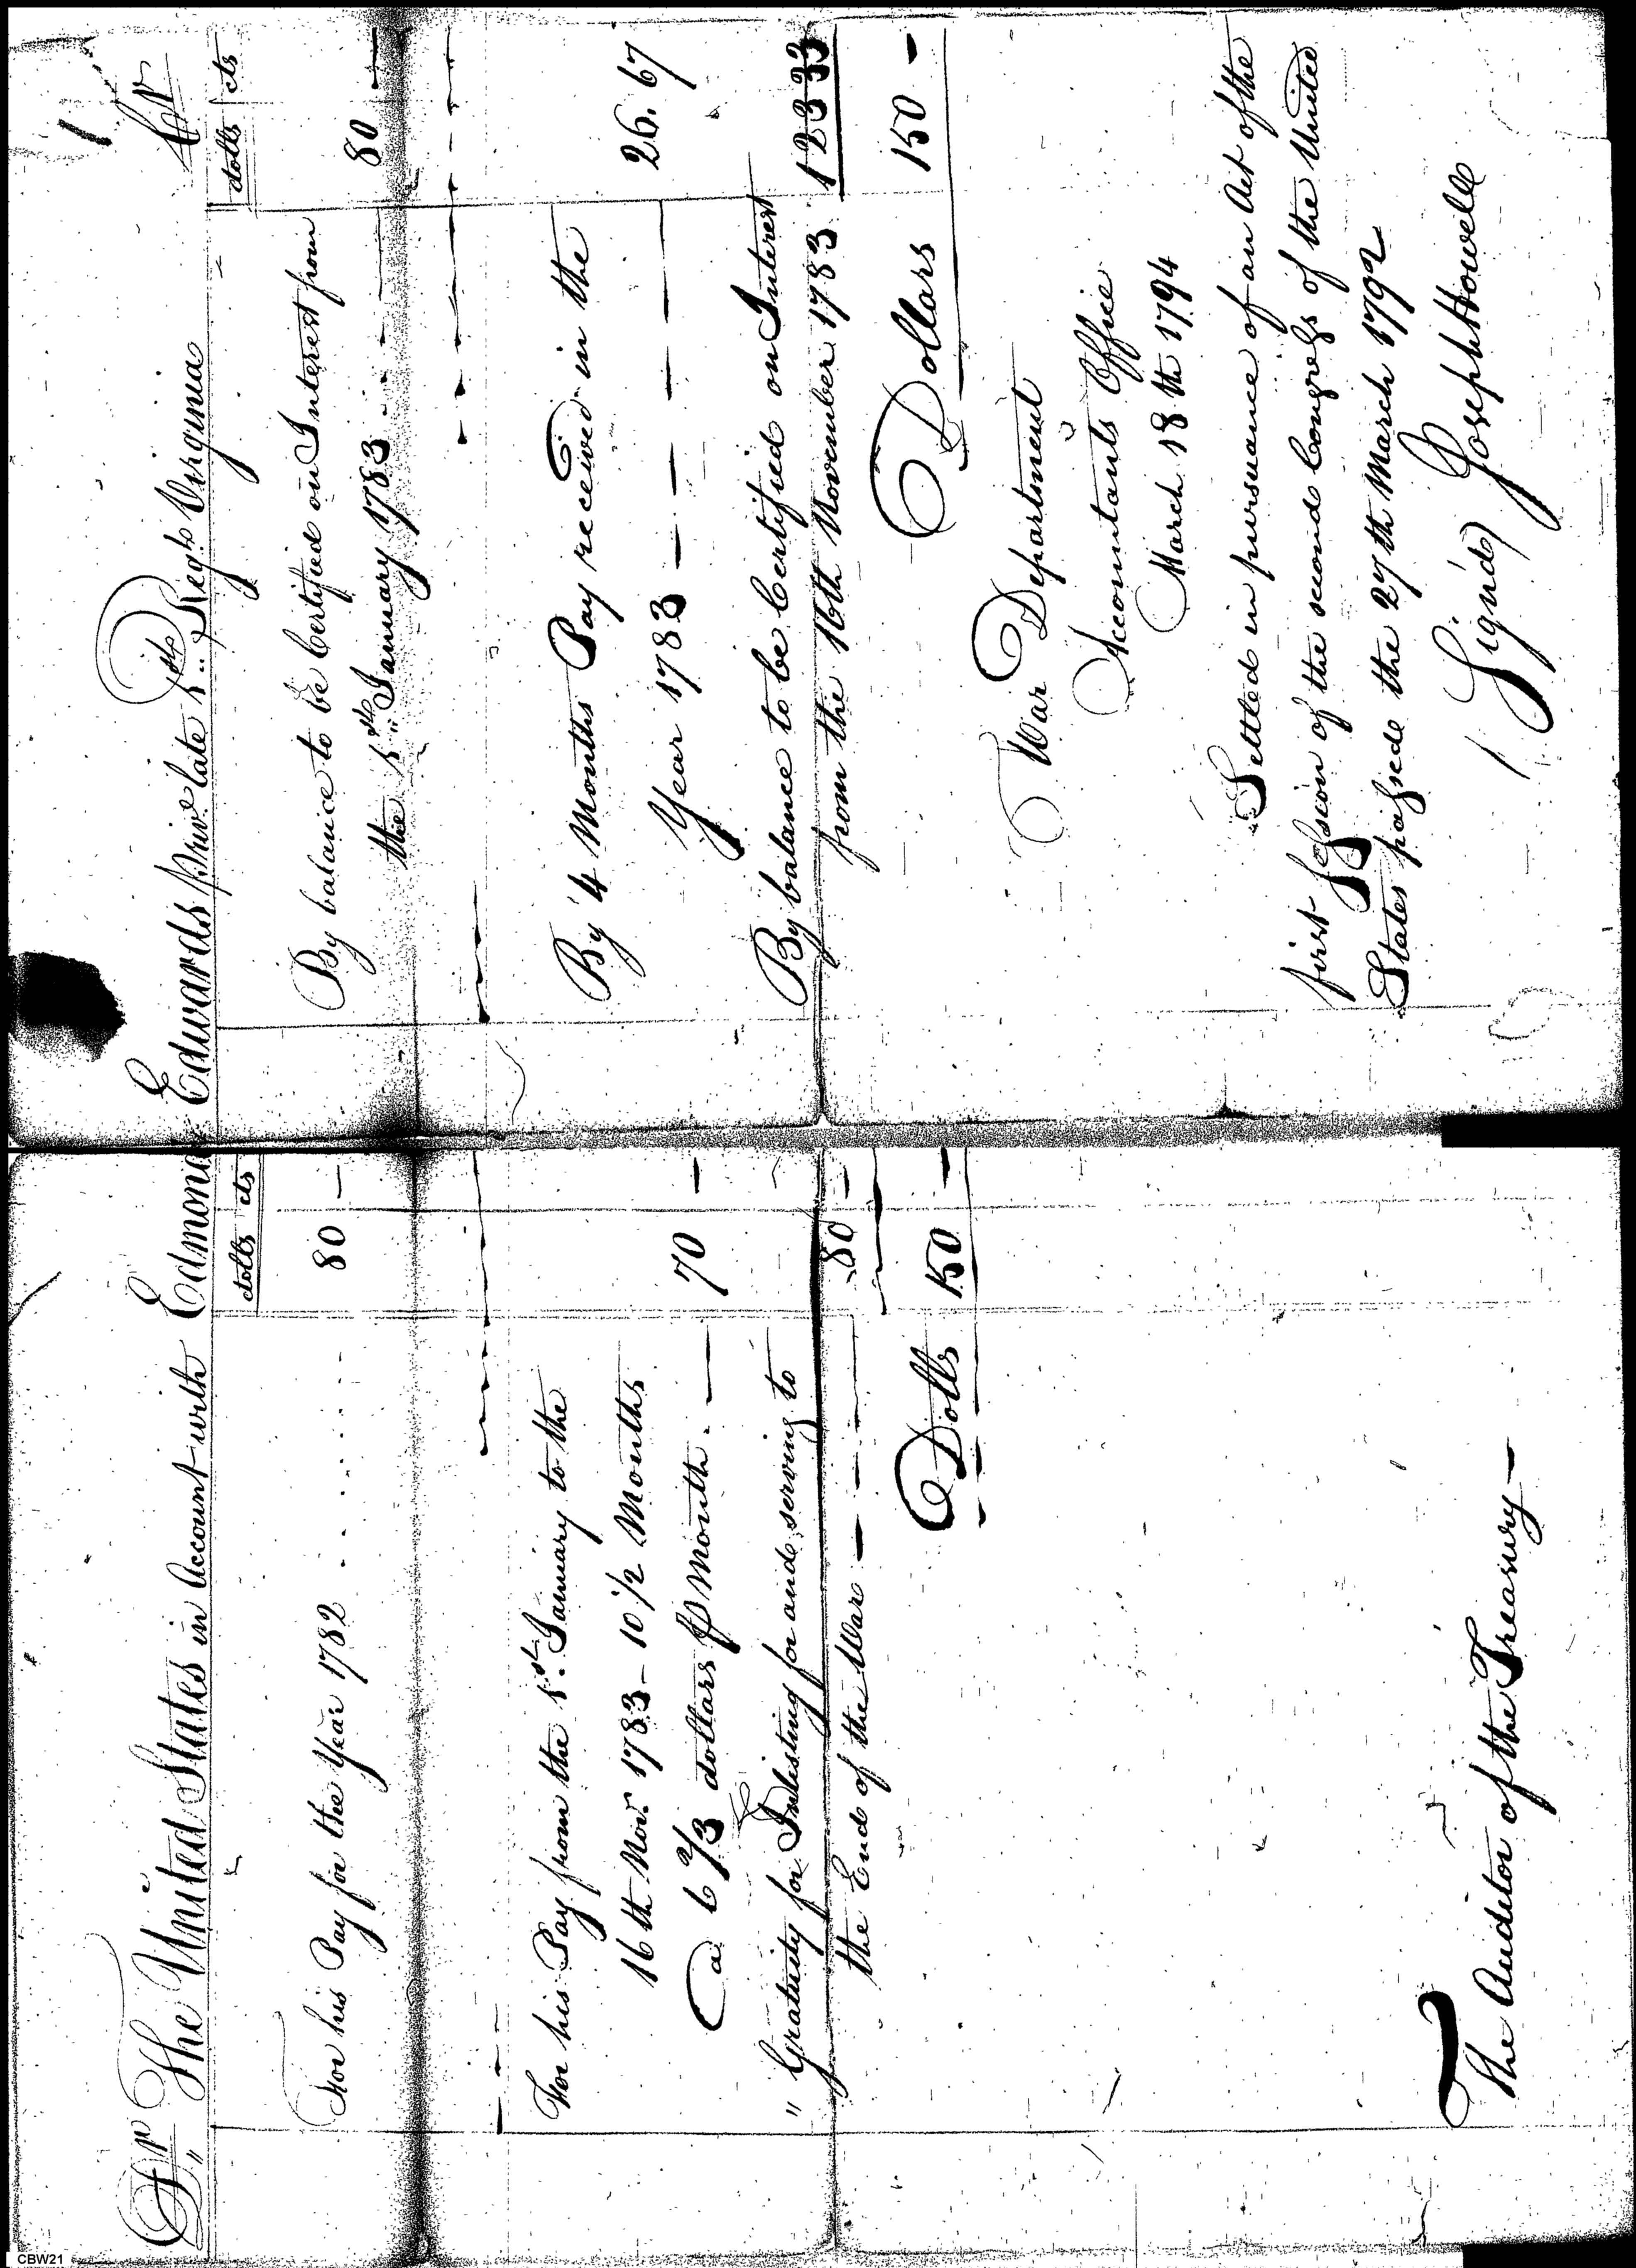 Dr The United States in Account with Edmond Edwards priv.e late 1st Regt. Virginia Cr
dolls cts
For his Pay for the Year 1782 80 —
For his Pay from the 1st January to the
16th Nov.r 1783 - 10 1/2 Months
a 6 2/3 dollars P Month . — 70 —
" Gratuity for Inlisting for and serving to
the End of the War — — — 80 —
Dolls 150 —
The Auditor of the Treasury —
dolls cts
By balance to be Certified on Interest from
the 1st January 1783 80 —
By 4 Months Pay received in the
Year 1783 — — — — 26.67
By balance to be Certified on Interest
from the 16th November 1783 123 33
Dollars 150 —
War Department
Accountants Office
March 18th 1794
Settled in pursuance of an Act of the
first session of the second Congress of the United
States passed the 27th March 1792
(Sign'd) Joseph Howell
CBW21